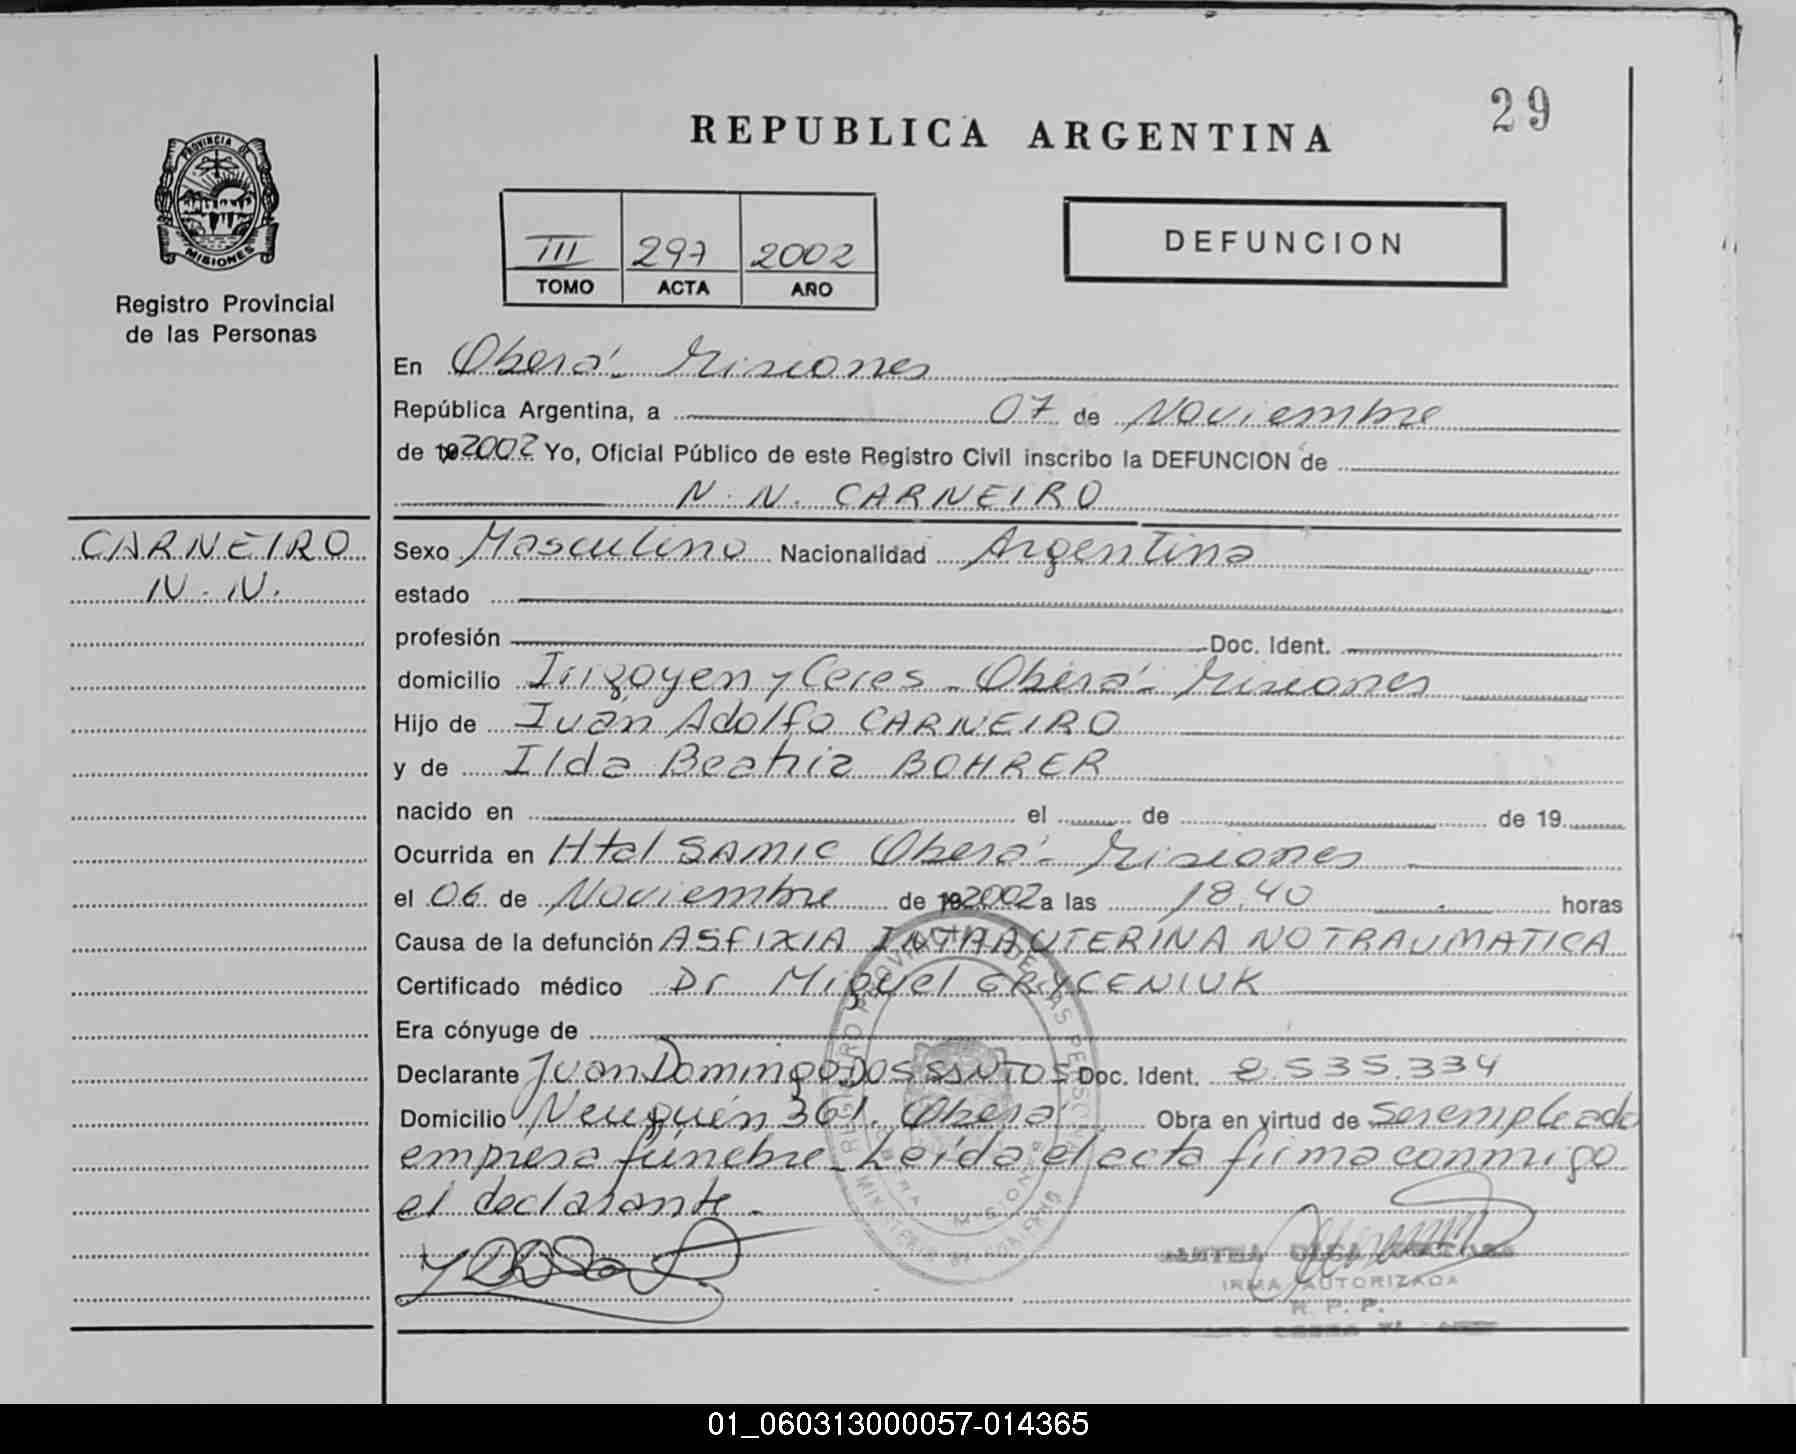 29
REPUBLICA ARGENTINA
PROVINCIA DE
MISIONES
Registro Provincial
de las Personas
III 297 2002
TOMO ACTA AÑO
DEFUNCION
En Oberá - Misiones
República Argentina, a 07 de Noviembre
de 192002 Yo, Oficial Público de este Registro Civil inscribo la DEFUNCION de
N. N. CARNEIRO
CARNEIRO
N. N.
Sexo Masculino Nacionalidad Argentina
estado
profesión Doc. Ident.
domicilio Irigoyen y Ceres - Oberá - Misiones
Hijo de Iván Adolfo CARNEIRO
y de Ilda Beatriz BOHRER
nacido en el de de 19
Ocurrida en Htal SAMIC Oberá - Misiones
el 06 de Noviembre de 192002 a las 18,40 horas
Causa de la defunción ASFIXIA INTRAUTERINA NO TRAUMATICA
Certificado médico Dr Miguel GRYCENIUK
Era cónyuge de
Declarante Juan Domingo DOS SANTOS Doc. Ident. 8.535.334
Domicilio Neuquén 361. Oberá Obra en virtud de Ser empleado
empresa fúnebre - Leída el acta firma conmigo
el declarante -
FIRMA AUTORIZADA
R. P. P.
01_060313000057-014365